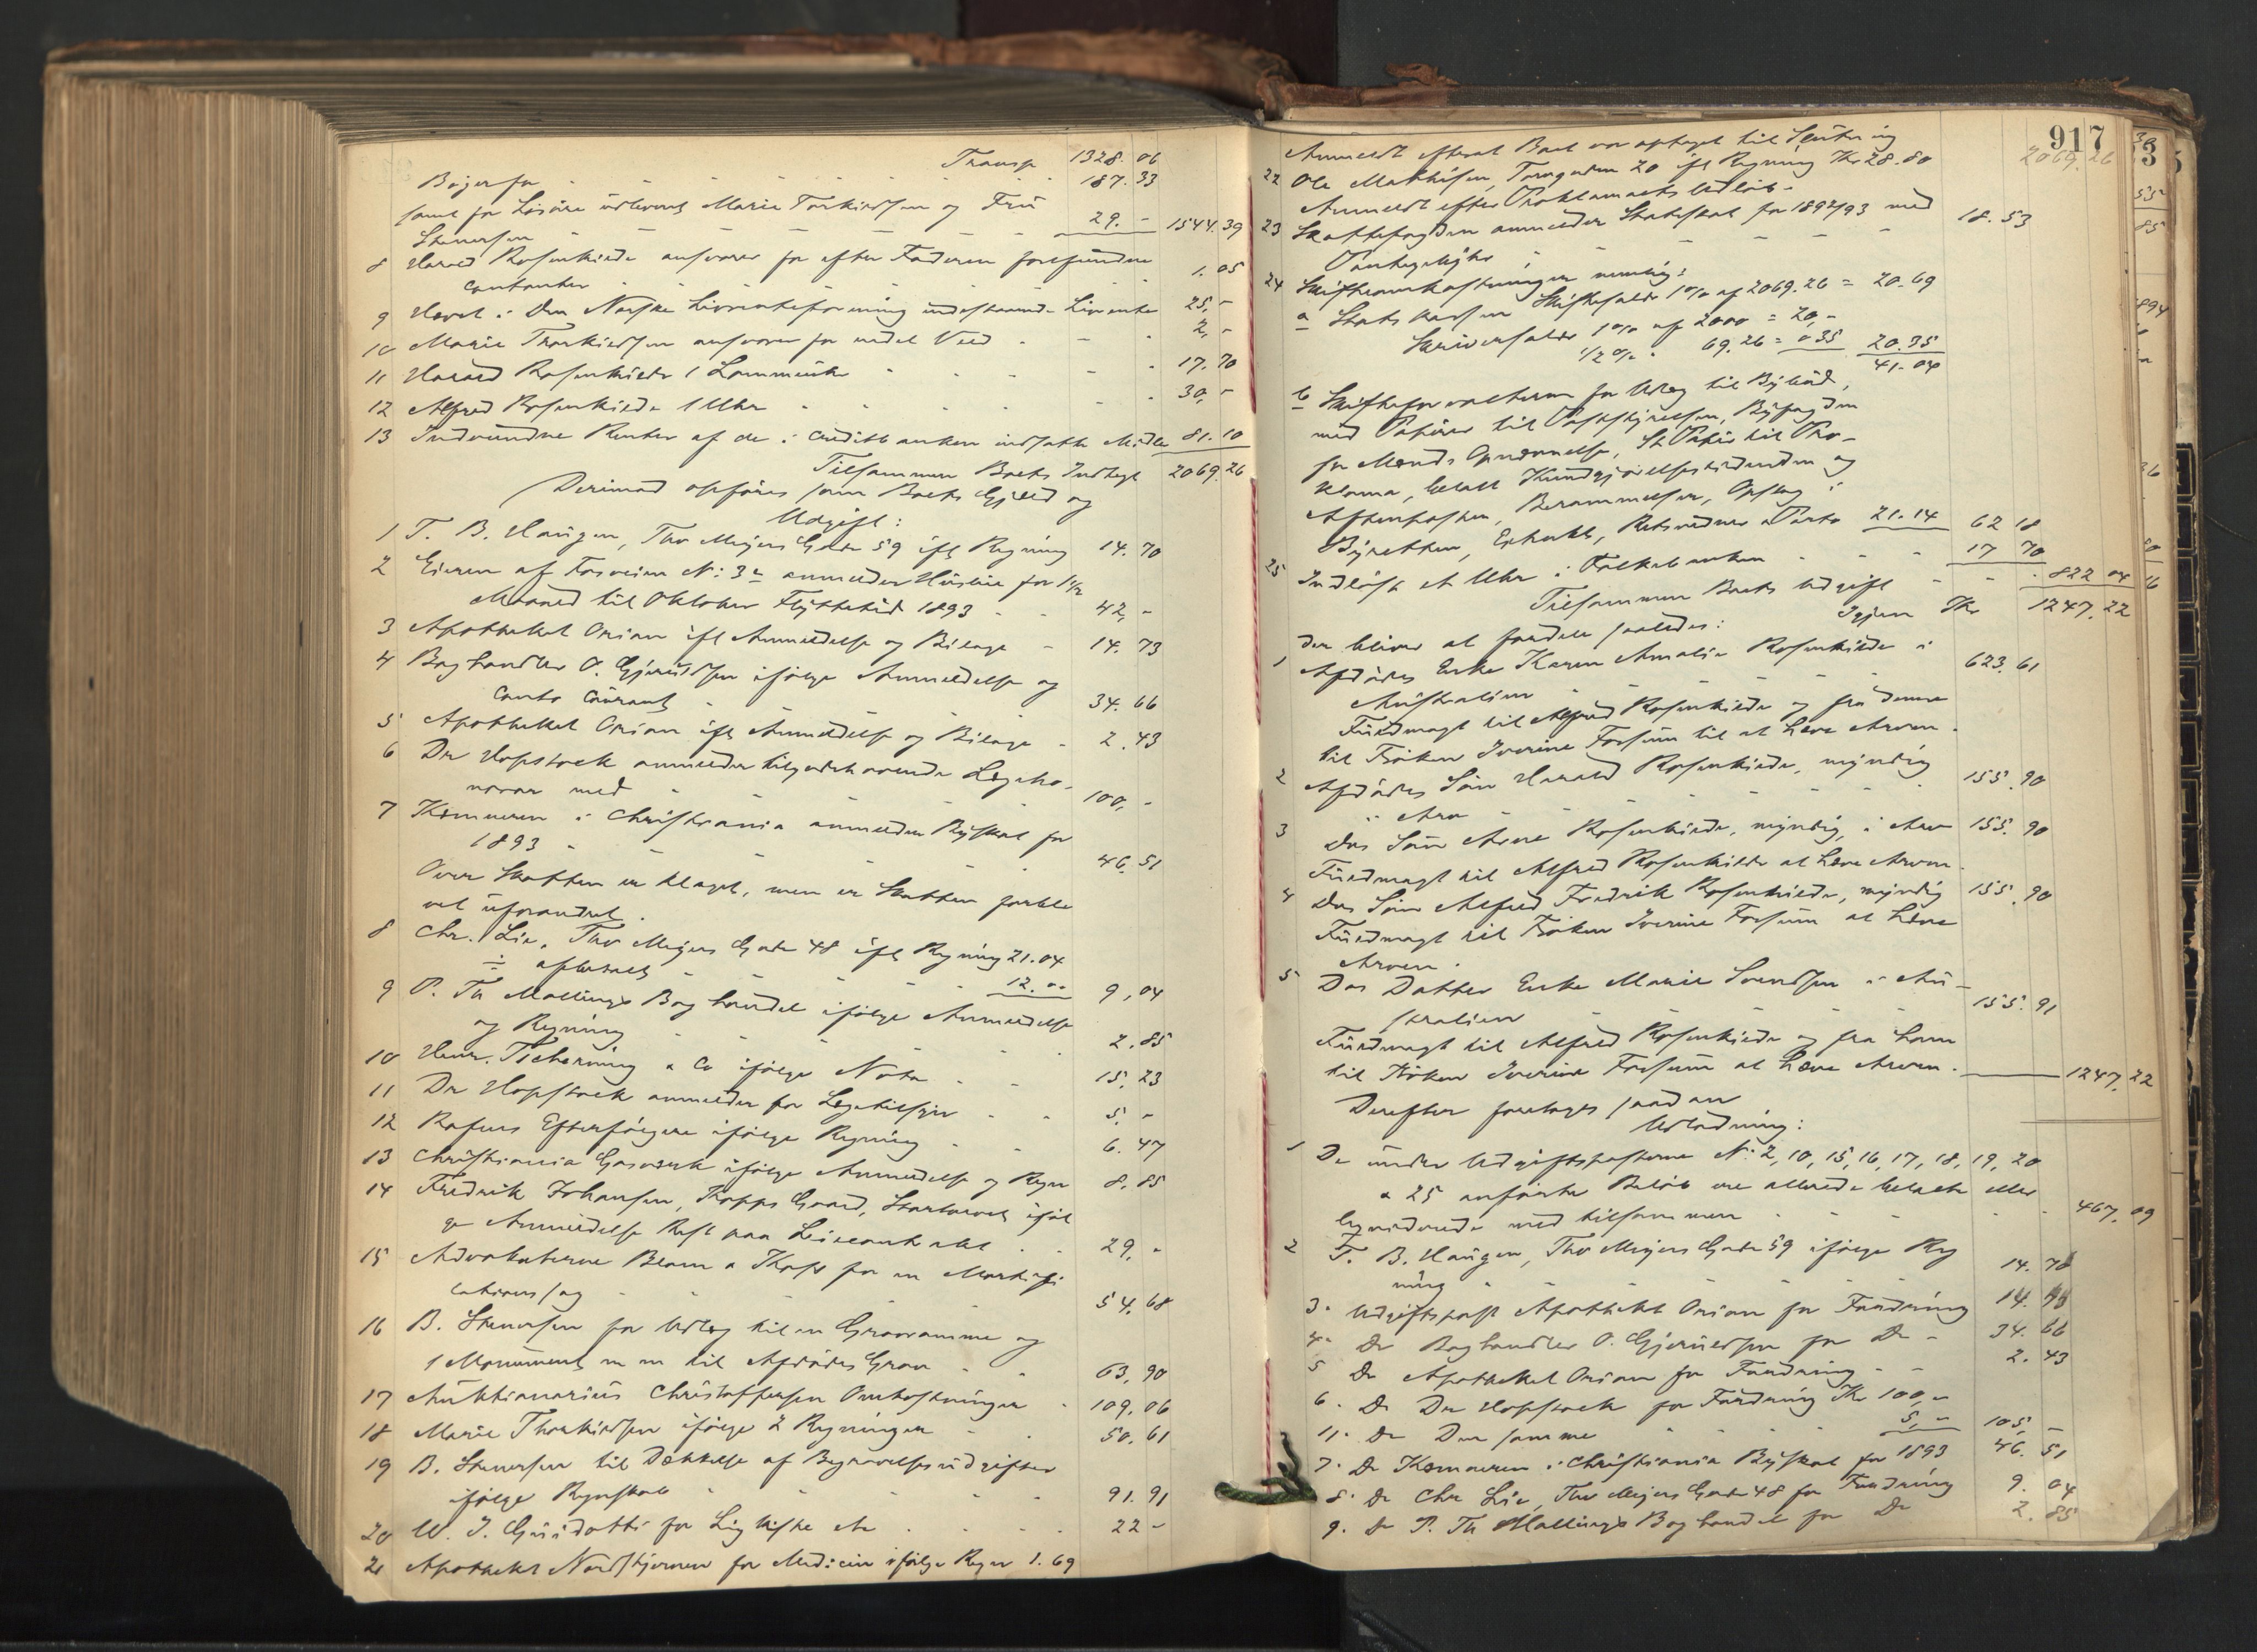 Transp 1328.06
Bøger for 187.33
samt for Løsøre udleveret Marie Torkildsen og Frü
Stenersen 29.- 1544.39
8 Harald Rosenkilde ansvarer for efter Faderen forefundne
Contanter 1.05
9 Hævet i Den Norske Livrenteforening indestaaende Livrente 25,-
10 Marie Thorkildsen ansvarer for nedel Ved 2,-
11 Harald Rosenkilde 1 Lommeuhr 17.70
12 Alfred Rosenkilde 1 Uhr 30,-
13 Indvundne Renter af de i Creditbanken indsatte Midler 81.10
Tilsammen Boets Indtægt 2069.26
Derimod opføres som Boets Gjæld og
Udgift:
1 T. B. Haugen, Thv Meyers Gade 59 ifl Regning 14.70
2 Eieren af Fosveien N: 3a anmelder Husleie for 1 1/2
Maaned til Oktober Flyttetid 1893 42,-
3 Apotheket Orion ifl Anmeldelse og Bilage 14.73
4 Boghandler O. Gjerüldsen ifølge Anmeldelse og
Conto Courant 34.66
5 Apotheket Orion ifl Anmeldelse og Bilage 2.43
6 Dr Hopstock anmelder tilgodehavende Lægeho-
norar med 100,-
7 Kæmneren i Christiania anmelder Byskat for
1893 46.51
Over Skatten er klaget, men er Skatten forble
vet uforandret.
8 Chr. Lie, Thv Meyers Gade 48 ifl Regning 21.04
÷ afbetalt 12.00 9,04
9 P. Th Mallings Boghandel ifølge Anmeldelse
og Regning 2.85
10 Henr. Tscherning & Co ifølge Nota 15.23
11 Dr Hopstock anmelder for Lægetilsyn 5,-
12 Rafens Efterfølgere ifølge Regning 6.47
13 Christiania Gasværk ifølge Anmeldelse og Regn 8.85
14 Fredrik Johansen, Gaard, iføl
ge Anmeldelse Rest paa 29,-
15 Advokaterne Blom & for en Mortifi
cationssag 54.68
16 B. Stenersen for Udlæg til en Gravramme og
1 Monument m m til Afdødes Grav 63,90
17 Auktionarius Christoffersen Omkostninger 109.06
18 Marie Thorkildsen ifølge 2 Regninger 50.61
19 B. Stenersen til Dækkelse af Begravelsesudgifter
ifølge Regnskab 91.91
20 W. J. Guidotti for Ligkiste etc 22-
21 Apotheket Nordstjernen for Medicin ifølge Regn 1.69
917
Anmeldt efterat Boet var optaget til Slutning 2069.26
22 Ole Mathisen, Torvgaden 20 ifl Regning Kr 28.80
Anmeldt efter Proklamaets Udløb-
23 Skattefogden anmelder Statsskat for 1892/93 med 18.53
24 Skifteomkostninger nemlig:
a Statskassen Skiftesalær 1% af 2069.26 = 20.69
Skriversalær 1% af 2000 = 20,-
1/2 % " 69.26 = 0 35 20.35
41.04
b Skifteforvalteren for Udlæg til Bybud,
med Papirer til Politiet, Byfogden
for Mænds Opnævnelse, St. Papir til Pro-
klama, betalt Kundgjørelsestidenden og
Aftenposten, Berammelser, Opslag i
Byretten, Extrakt, Retsvidner & Porto 21.14 62 18
25 Indløst et Uhr i Folkebanken 17 70
Tilsammen Boets Udgift 822 04
Igjen Kr 1247.22
der bliver at fordele saaledes:
1 Afdødes Enke Karen Amalie Rosenkilde i
Australien 623.61
Fuldmagt til Alfred Rosenkilde og fra denne
til Frøken Iverine Forsum til at hæve Arven.
2 Afdødes Søn Harald Rosenkilde, myndig
i Arv 155.90
3 Das Søn Arne Rosenkilde, myndig, i Arv 155.90
Fuldmagt til Alfred Rosenkilde at hæve Arven.
4 Das Søn Alfred Fredrik Rosenkilde, myndig 155.90
Fuldmagt til Frøken Iverine Forsum at hæve
Arven.
5 Das Datter Enke Marie Svendsen i Au-
stralien 155.91
Fuldmagt til Alfred Rosenkilde og fra ham
til Frøken Iverine Forsum at hæve Arven. 1247.22
Derefter foretages saadan
Udlodning:
1 De under Udgiftsposterne N: 2, 10, 15, 16, 17, 18, 19, 20
& 25 anførte Beløb ere allerede betalte eller
liqviderede med tilsammen 467.09
2 T. B. Haugen, Thv Meyers Gade 59 ifølge Reg
ning 14.70
3. Udgiftspost Apotheket Orion for Fordring 14.
4. Do Boghandler O. Gjerüldsen for Do - 34.66
5 Do Apotheket Orion for Fordring 2.43
6. Do Dr Hopstock for Fordring Kr 100,-
11. Do Den samme 5,- 105,-
7. Do Kæmneren i Christiania Byskat for 1893 46.51
8. Do Chr Lie, Thv Meyers Gade 48 for Fordring 9.04
9. Do P. Th Mallings Boghandel for Do 2.85